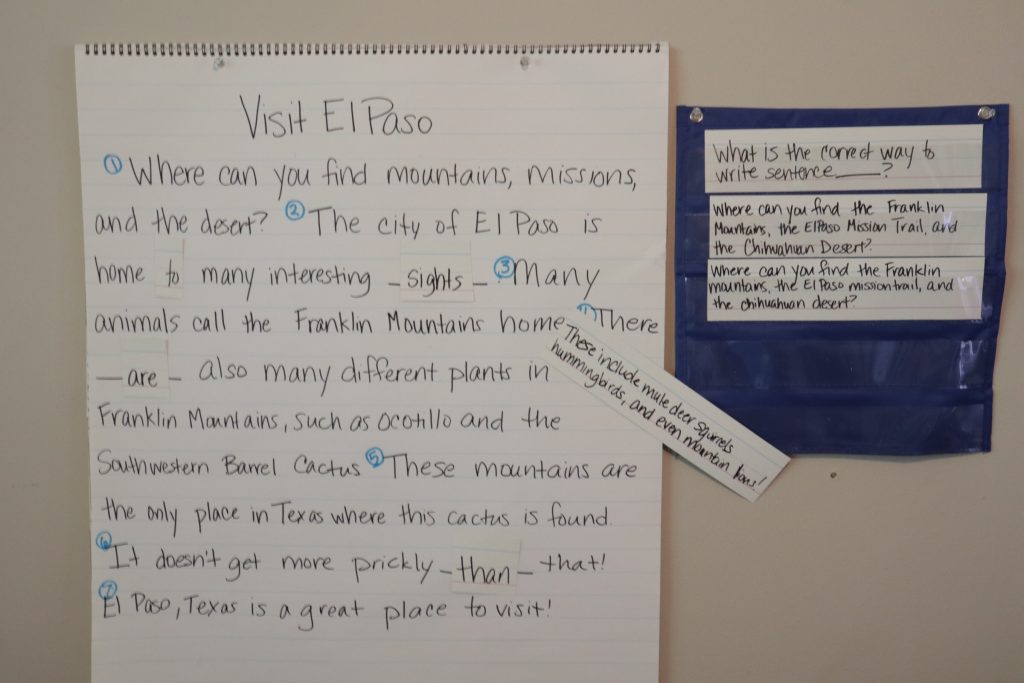 Visit El Paso
① Where can you find mountains, missions,
and the desert? ② The city of El Paso is
home to many interesting _ sights _ ③ Many
animals call the Franklin Mountains home There
_ are _ also many different plants in
Franklin Mountains, such as Ocotillo and the
Southwestern Barrel Cactus ⑤ These mountains are
the only place in Texas where this cactus is found.
⑥ It doesn't get more prickly _ than _ that!
⑦ El Paso, Texas is a great place to visit!
These include mule deer squirrels
hummingbirds, and even mountain lions!
What is the correct way to
write sentence____?
Where can you find the Franklin
Mountains, the El Paso Mission Trail, and
the Chihuahuan Desert?
Where can you find the Franklin
mountains, the El Paso mission trail, and
the chihuahuan desert?